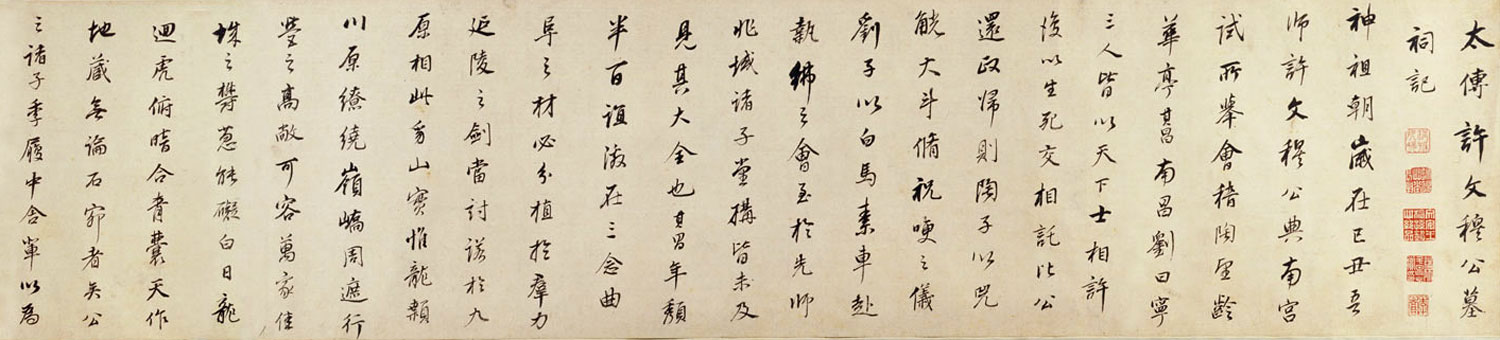 太傅許文穆公墓
祠記
神祖朝歲在己丑吾
師許文穆公典南宮
試所舉會稽陶望齡
華亭其昌南昌劉曰寧
三人皆以天下士相許
復以生死交相託比公
還政歸則陶子以兕
觥大斗脩祝哽之儀
劉子以白馬素車赴
執紼之會至於先師
兆域諸子堂構皆未及
見其大全也其昌年頹
半百誼激在三念曲
阜之材必分植於羣力
延陵之劍當討諾於九
原相此山實惟龍類
川原繚繞嶺嶠周遮行
塋之高敞可容萬家佳
城之鬱蔥能礙白日龍
迴虎俯暗合青囊天作
地藏無論石窌者矣公
之諸子季履中舍輩以為